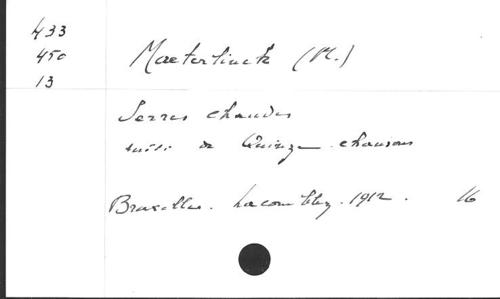 433
450
13
Maeterlinck (M.)
Serres chaudes
suivi de Quinze chansons
Bruxelles. Lacomblez. 1912. 16